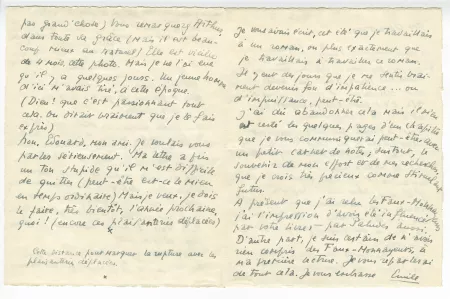 pas grand'chose) Vous remarquez Arthur
dans toute sa grâce (Mais il est beau-
coup mieux au naturel) Elle est vieille
de 4 mois cette photo. Mais je ne l'ai eue
qu'il y a quelques jours. Un jeune homme
d'ici m'avait tiré, à cette époque.
(Dieu! que c'est passionnant tout
cela. On dirait vraiment que je le fais
exprès)
Non, Edouard, mon ami. Je voulais vous
parler sérieusement. Ma lettre a pris
un ton stupide qu'il m'est difficile
de quitter (peut-être est-ce le mien
en temps ordinaire) Mais je veux, je dois
le faire, très bientôt, l'année prochaine,
quoi! (encore ces plaisanteries déplacées)
Cette distance pour marquer la rupture avec les
plaisanteries déplacées.
Je vous avais écrit, cet été que je travaillais
à un roman, ou plus exactement que
je travaillais à travailler ce roman.
Il y eut des jours que je me sentis vrai-
ment devenir fou d'impatience... ou
d'impuissance, peut-être.
J'ai dû abandonner cela mais il m'en
est resté quelques pages d'un chapitre
que je vous communiquerai peut-être avec
un petit carnet de notes, surtout, le
souvenir de mon effort et de mes recherches,
que je crois très précieux comme stimulant
futur.
A présent que j'ai relu les Faux-Monnayeurs
j'ai l'impression d'avoir été influencé
par votre livre —
D'autre part, je suis certain de n'avoir
rien compris des Faux-Monnayeurs, à
ma première lecture. Je vous reparlerai
de tout cela. Je vous embrasse Emile